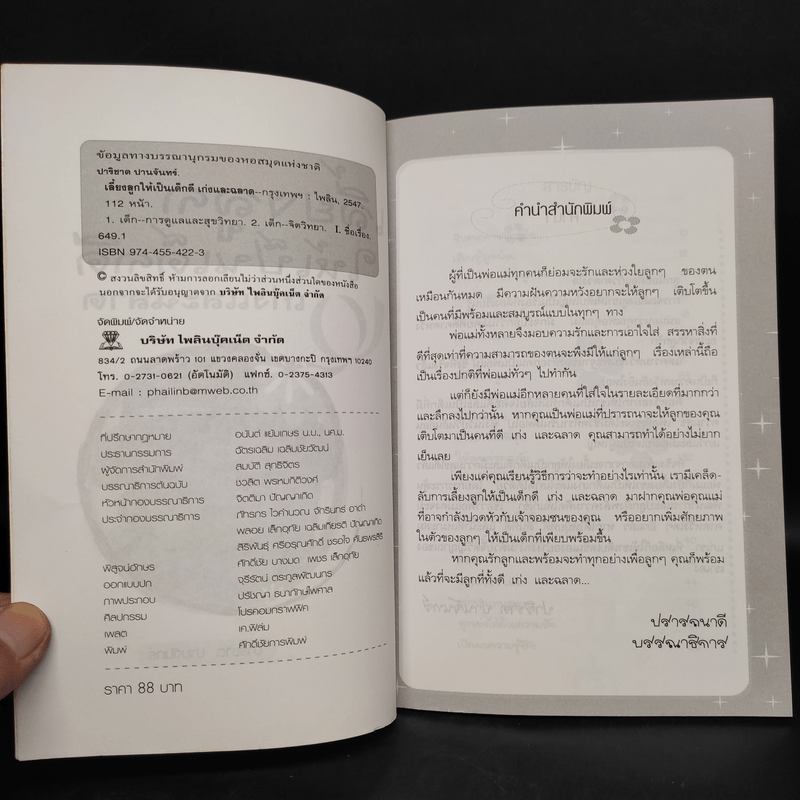 ข้อมูลทางบรรณานุกรมของหอสมุดแห่งชาติ
ปาริชาต ปานจันทร์.
เลี้ยงลูกให้เป็นเด็กดี เก่งและฉลาด--กรุงเทพฯ : ไพลิน, 2547.
112 หน้า.
1. เด็ก--การดูแลและสุขวิทยา. 2. เด็ก--จิตวิทยา. I. ชื่อเรื่อง.
649.1
ISBN 974-455-422-3
© สงวนลิขสิทธิ์ ห้ามการลอกเลียนไม่ว่าส่วนหนึ่งส่วนใดของหนังสือ
นอกจากจะได้รับอนุญาตจาก บริษัท ไพลินบุ๊คเน็ต จำกัด
จัดพิมพ์/จัดจำหน่าย
บริษัท ไพลินบุ๊คเน็ต จำกัด
834/2 ถนนลาดพร้าว 101 แขวงคลองจั่น เขตบางกะปิ กรุงเทพฯ 10240
โทร. 0-2731-0621 (อัตโนมัติ) แฟกซ์. 0-2375-4313
E-mail : phailinb@mweb.co.th
ที่ปรึกษากฎหมาย อนันต์ แย้มเกษร น.บ., นศ.ม.
ประธานกรรมการ ฉัตรเฉลิม เฉลิมชัยวัฒน์
ผู้จัดการสำนักพิมพ์ สมบัติ สุทธิจิตร
บรรณาธิการต้นฉบับ ชวลิต พรหมกิติวงศ์
หัวหน้ากองบรรณาธิการ จิตติมา ปัญญาเกิด
ประจำกองบรรณาธิการ ภัทรกร ไวคำนวณ จักรินทร์ อาดำ
พลอย เล็กอุทัย เฉลิมเกียรติ ปัญญาเกิด
สิริพันธุ์ ศรีอรุณศักดิ์ ชรอใจ คันธพรสิริ
พิสูจน์อักษร ศักดิ์ชัย บางมด เพชร เล็กอุทัย
ออกแบบปก จุรีรัตน์ ตระกูลพัฒนกร
ภาพประกอบ ปรัชญา ธนาภักษ์ไพศาล
ศิลปกรรม โปรคอมกราฟฟิค
เพลต เค.ฟิล์ม
พิมพ์ ศักดิ์ชัยการพิมพ์
ราคา 88 บาท
คำนำสำนักพิมพ์
ผู้ที่เป็นพ่อแม่ทุกคนก็ย่อมจะรักและห่วงใยลูกๆ ของตน
เหมือนกันหมด มีความฝันความหวังอยากจะให้ลูกๆ เติบโตขึ้น
เป็นคนที่มีพร้อมและสมบูรณ์แบบในทุกๆ ทาง
พ่อแม่ทั้งหลายจึงมอบความรักและการเอาใจใส่ สรรหาสิ่งที่
ดีที่สุดเท่าที่ความสามารถของตนจะพึงมีให้แก่ลูกๆ เรื่องเหล่านี้ถือ
เป็นเรื่องปกติที่พ่อแม่ทั่วๆ ไปทำกัน
แต่ก็ยังมีพ่อแม่อีกหลายคนที่ใส่ใจในรายละเอียดที่มากกว่า
และลึกลงไปกว่านั้น หากคุณเป็นพ่อแม่ที่ปรารถนาจะให้ลูกของคุณ
เติบโตมาเป็นคนที่ดี เก่ง และฉลาด คุณสามารถทำได้อย่างไม่ยาก
เย็นเลย
เพียงแค่คุณเรียนรู้วิธีการว่าจะทำอย่างไรเท่านั้น เรามีเคล็ด-
ลับการเลี้ยงลูกให้เป็นเด็กดี เก่ง และฉลาด มาฝากคุณพ่อคุณแม่
ที่อาจกำลังปวดหัวกับเจ้าจอมซนของคุณ หรืออยากเพิ่มศักยภาพ
ในตัวของลูกๆ ให้เป็นเด็กที่เพียบพร้อมขึ้น
หากคุณรักลูกและพร้อมจะทำทุกอย่างเพื่อลูกๆ คุณก็พร้อม
แล้วที่จะมีลูกที่ทั้งดี เก่ง และฉลาด...
ปรารถนาดี
บรรณาธิการ